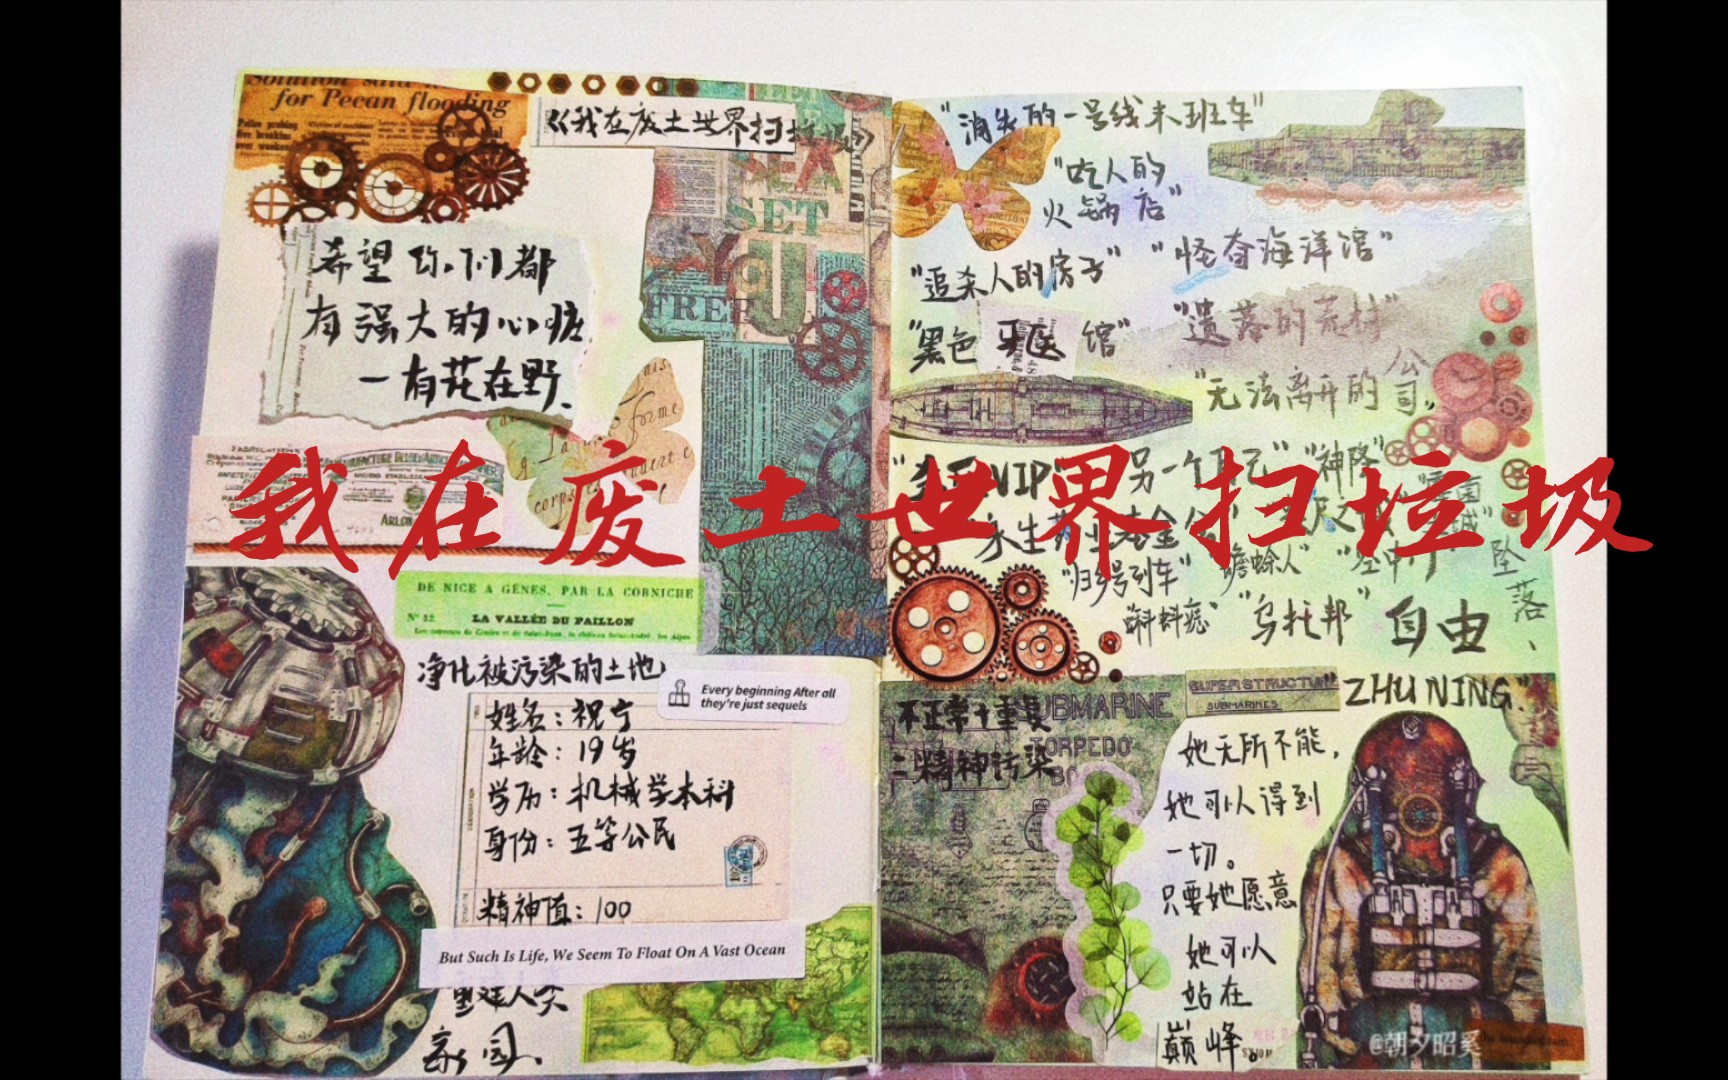 for Pecan flooding
《我在废土世界扫垃圾》
希望你们都
有强大的心脏
—有花在野、
SET
YOU
FREE
DE NICE A GÊNES, PAR LA CORNICHE
N° 12
LA VALLÉE DU PAILLON
净化被污染的土地
Every beginning After all
they're just sequels
姓名：祝宁
年龄：19岁
学历：机械学本科
身份：五等公民
精神值：100
But Such Is Life, We Seem To Float On A Vast Ocean
重建人类
家园、
"消失的一号线末班车"
"吃人的
火锅店"
"追杀人的房子"
"怪奇海洋馆"
"黑色牙医馆"
"遗落的荒村"
"无法离开的公司"
我在废土世界扫垃圾
VIP"
"神降"
"归乡号列车"
"蟾蜍人"
"蝌蚪患"
"乌托邦"
坠落、
自由
不正常+重复
=精神污染
SUBMARINE
TORPEDO
SUPERSTRUCTURE
SUBMARINES
ZHU NING
她无所不能，
她可以得到
一切。
只要她愿意
她可以
站在
巅峰。
@朝夕昭奚